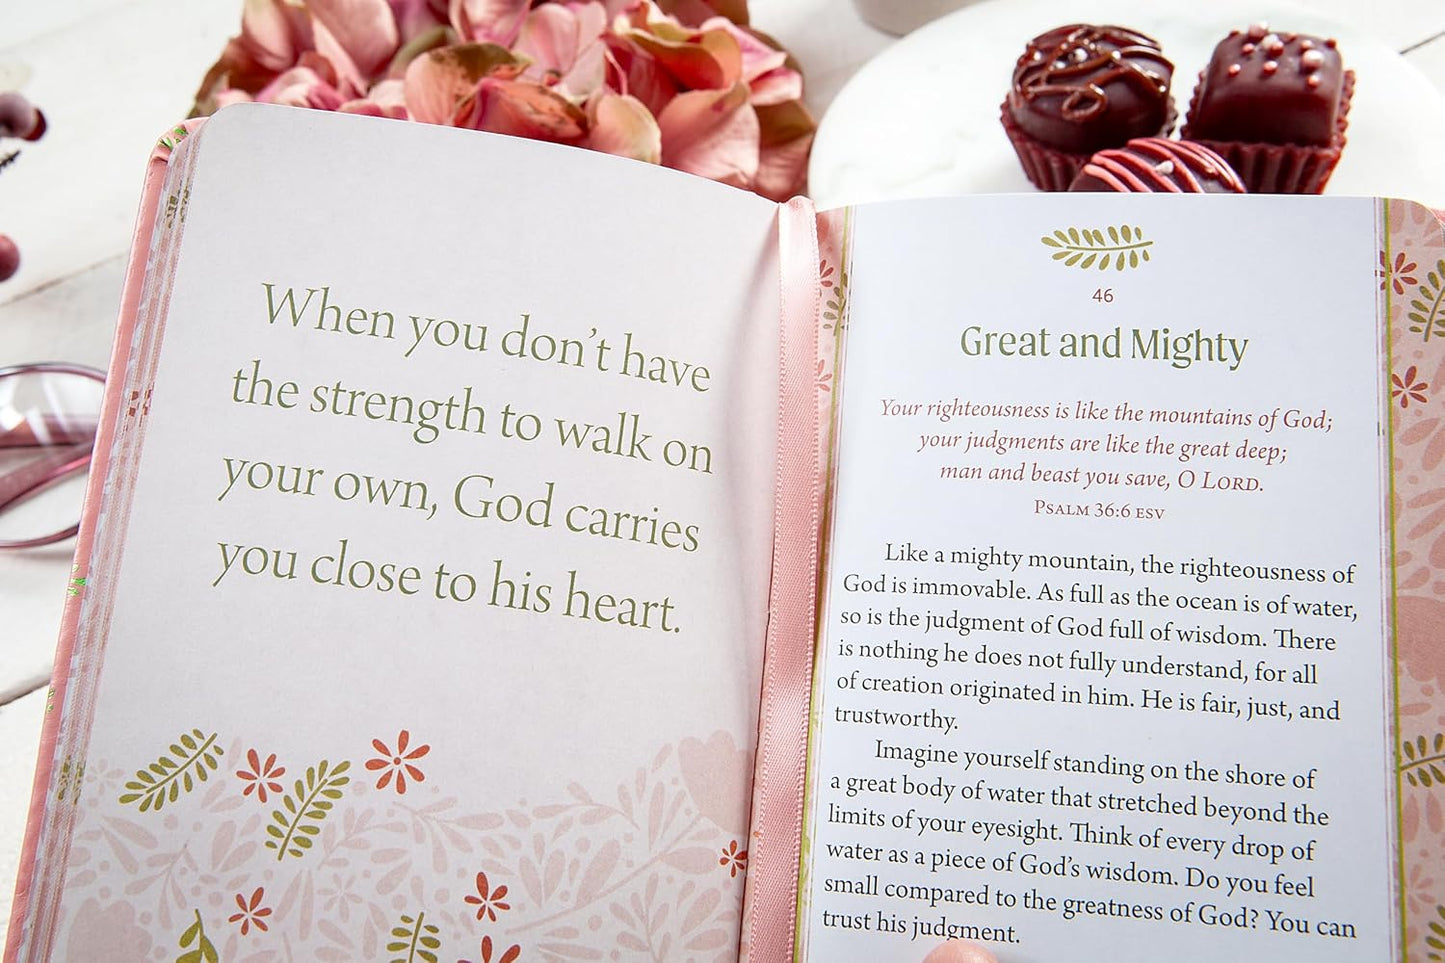 When you don't have
the strength to walk on
your own, God carries
you close to his heart.
46
Great and Mighty
Your righteousness is like the mountains of God;
your judgments are like the great deep;
man and beast you save, O LORD.
PSALM 36:6 ESV
Like a mighty mountain, the righteousness of
God is immovable. As full as the ocean is of water,
so is the judgment of God full of wisdom. There
is nothing he does not fully understand, for all
of creation originated in him. He is fair, just, and
trustworthy.
Imagine yourself standing on the shore of
a great body of water that stretched beyond the
limits of your eyesight. Think of every drop of
water as a piece of God's wisdom. Do you feel
small compared to the greatness of God? You can
trust his judgment.